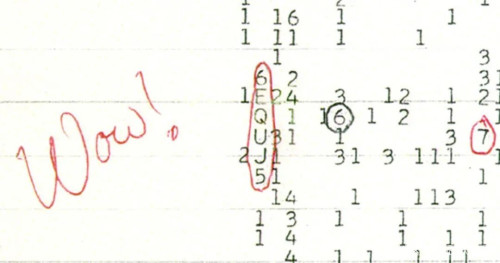 1
1 16 1 1
1 11 1 1
1 3
6 2 31
1 E 24 3 12 1 21
Q 1 16 1 2 1 1
U 31 1 3 7
2 J 1 31 3 111 1
5 1 1
14 1 113
1 3 1 1 1
1 4 1 1 1
4 1 1 11
Wow!